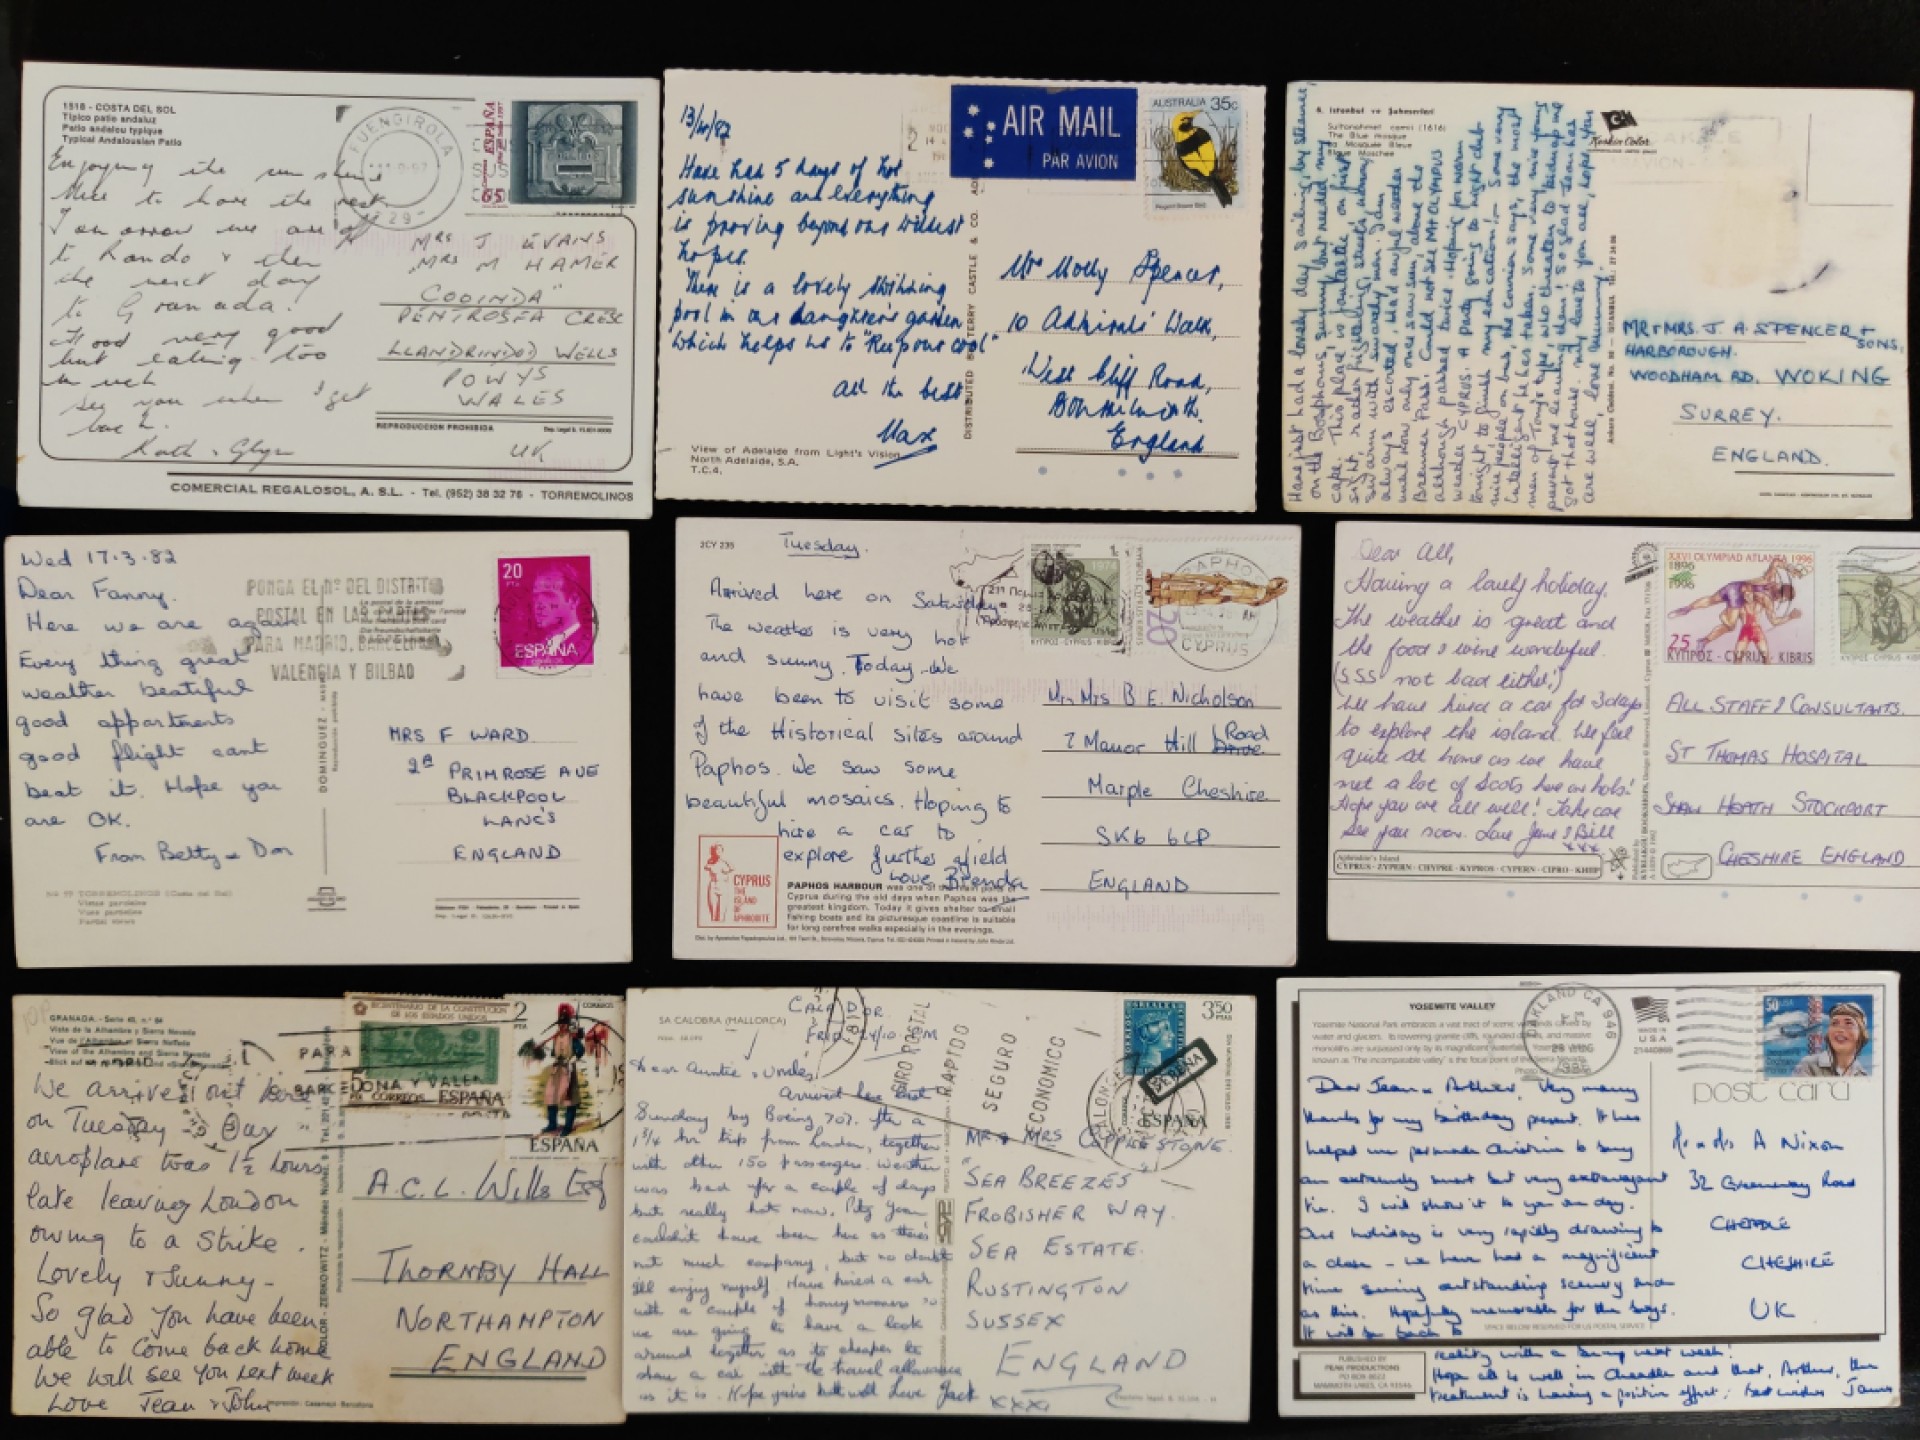 1518 - COSTA DEL SOL
Típico patio andaluz
Patio andalou typique
Typical Andalousian Patio
Enjoying the sunshine
Nice to have the rest.
Tomorrow we are off
to Rondo & then
the next day
to Granada.
Food very good
but eating too
much
see you when I get
back.
Kath & Glyn
FUENGIROLA
29
ESPAÑA
65
MRS J EVANS
MRS M HAMER
"COOINDA"
PENTROSFA CRESC
LLANDRINDOD WELLS
POWYS
WALES
REPRODUCCION PROHIBIDA
UK
COMERCIAL REGALOSOL, A. S.L. - Tel. (952) 38 32 76 - TORREMOLINOS
13/10/82
Have had 5 days of hot
sunshine and everything
is proving beyond our wildest
hopes.
There is a lovely swimming
pool in our daughter's garden
which helps us to "Keep our cool"
All the best
Max
View of Adelaide from Light's Vision
North Adelaide, S.A.
T.C.4.
AIR MAIL
PAR AVION
AUSTRALIA 35c
Mrs Molly Spencer,
10 Admirals Walk,
West Cliff Road,
Bournemouth
England
6. Istanbul ve Şaheserleri
Sultanahmet camii (1616)
The Blue mosque
La Mosquée Bleue
Blaue Moschee
Keskin Color
Have just had a lovely day sailing, by steamer,
on the Bosphorus, sunny but needed my
cape. This place is fantastic on first
sight, rather frightening, streets, and
swarm with swarthy men. I am
always escorted. Had awful weather
until now only once saw sun, above the
Brenner Pass. Could not see Mt OLYMPUS
although passed twice. Hoping for warm
weather CYPRUS. A party going to night club
tonight to finish my education! - Some very
nice people on bus, the Courier says, the most
intelligent he has taken. Some very nice young
men of Tony's type, who threaten to kidnap me
prevent me leaving them! So glad Jean has
got that house. My love to you all, hope you
are well, love Mummy.
MR & MRS. J. A. SPENCER &
SONS,
HARBOROUGH.
WOODHAM RD. WOKING
SURREY.
ENGLAND.
Wed 17.3.82
Dear Fanny.
Here we are again
Every thing great
weather beatiful
good appartments
good flight cant
beat it. Hope you
are OK.
From Betty & Don
PONGA EL Nº DEL DISTRITO
POSTAL EN LAS CARTAS
PARA MADRID, BARCELONA
VALENCIA Y BILBAO
20
PTA
ESPAÑA
DOMINGUEZ
MRS F WARD
2A PRIMROSE AVE
BLACKPOOL
LANC'S
ENGLAND
TORREMOLINOS (Costa del Sol)
2CY 235
Tuesday.
Arrived here on Saturday.
The weather is very hot
and sunny. Today we
have been to visit some
of the Historical sites around
Paphos. We saw some
beautiful mosaics. Hoping to
hire a car to
explore further afield
Love Brenda
CYPRUS
THE
ISLAND
OF
APHRODITE
PAPHOS HARBOUR was one of the main ports of
Cyprus during the old days when Paphos was the
greatest kingdom. Today it gives shelter to small
fishing boats and its picturesque coastline is suitable
for long carefree walks especially in the evenings.
1974
ΚΥΠΡΟΣ CYPRUS KIBRIS
20
CYPRUS
Mr Mrs B E. Nicholson
7 Manor Hill Drive Road
Marple Cheshire
SK6 6LP
ENGLAND
Dear All,
Having a lovely holiday.
The weather is great and
the food & wine wonderful.
(SSS not bad either!)
We have hired a car for 3 days
to explore the island. We feel
quite at home as we have
met a lot of Scots here on hols!
Hope you are all well! Take care
See you soon. Love Jane & Bill
xxx
Aphrodite's Island
CYPRUS - ZYPERN - CHYPRE - KYPROS - CYPERN - CIPRO
XXVI OLYMPIAD ATLANTA 1996
1896
1996
25
ΚΥΠΡΟΣ - CYPRUS - KIBRIS
ALL STAFF & CONSULTANTS.
ST THOMAS HOSPITAL
SHAW HEATH STOCKPORT
CHESHIRE ENGLAND
GRANADA. - Serie 40, n.º 84
Vista de la Alhambra y Sierra Nevada
Vue de l'Alhambra et Sierra Nevada
View of the Alhambra and Sierra Nevada
We arrived out here
on Tuesday. Our
aeroplane was 1½ hours
late leaving London
owing to a strike.
Lovely & Sunny -
So glad you have been
able to come back home
We will see you next week
Love Jean & John
BICENTENARIO DE LA CONSTITUCION
DE LOS ESTADOS UNIDOS
CORREOS ESPAÑA
2
PTA
CORREOS
ESPAÑA
A.C.L. Wills Esq
THORNBY HALL
NORTHAMPTON
ENGLAND
SA CALOBRA (MALLORCA)
CALA D'OR
FRID
Dear Auntie & Uncle,
Arrived here last
Sunday by Boeing 707. After a
1¾ hr trip from London, together
with other 150 passengers. Weather
was bad for a couple of days
but really hot now. Pity Joan
couldn't have been here as there's
not much company, but no doubt
I'll enjoy myself. Have hired a car
with a couple of honeymooners so
we are going to have a look
around together as its cheaper to
share a car with the travel allowance
as it is. Hope you're both well Love Jack
xxxx
GIRO POSTAL
RAPIDO
SEGURO
ECONOMICO
3'50
PTAS
ESPAÑA
MR & MRS COPPLESTONE.
"SEA BREEZES"
FROBISHER WAY.
SEA ESTATE.
RUSTINGTON
SUSSEX
ENGLAND
YOSEMITE VALLEY
Yosemite National Park embraces a vast tract of scenic wonders carved by
water and glaciers.
MADE IN
USA
OAKLAND CA 946
50 USA
post card
Dear Jean & Arthur, Very many
thanks for my birthday present. It has
helped me persuade Christine to buy
an extremely smart but very extravagant
tie. I will show it to you one day.
Our holiday is very rapidly drawing to
a close - we have had a magnificent
time seeing outstanding scenery such
as this. Hopefully memorable for the boys.
It will be back to
reality with a bump next week!
Hope all is well in Cheadle and that, Arthur, the
treatment is having a positive effect. Best wishes James
Mr & Mrs A Nixon
32 Greenway Road
CHEADLE
CHESHIRE
UK
SPACE BELOW RESERVED FOR US POSTAL SERVICE
PUBLISHED BY
PEAK PRODUCTIONS
PO BOX 8622
MAMMOTH LAKES, CA 93546